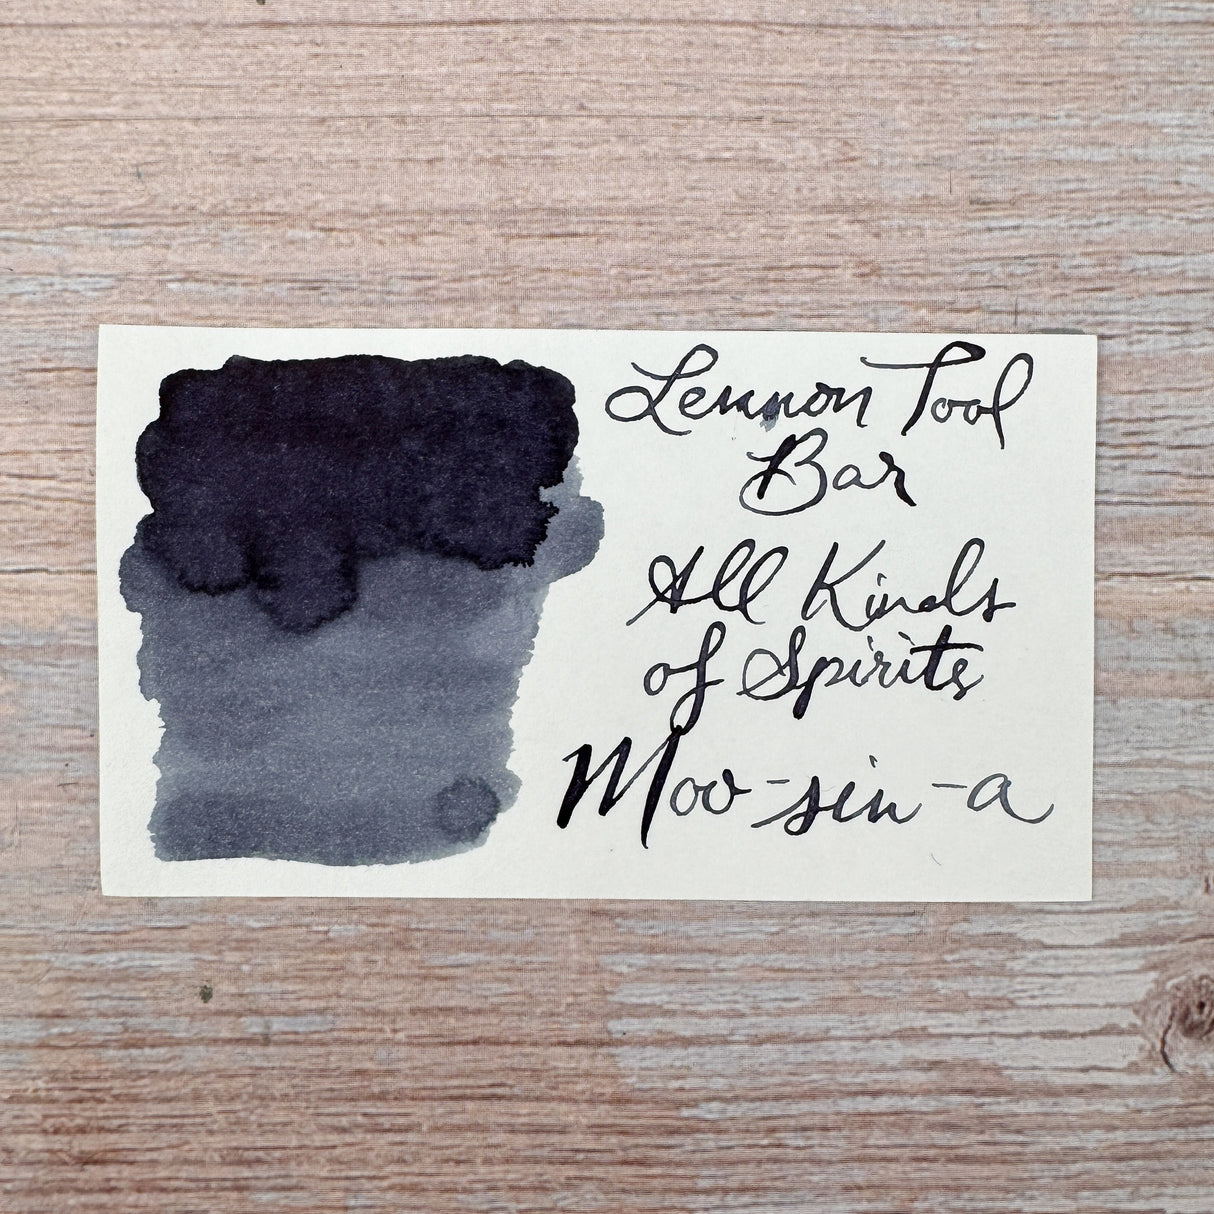 Lennon Tool
Bar
All Kinds
of Spirits
Moo-sin-a